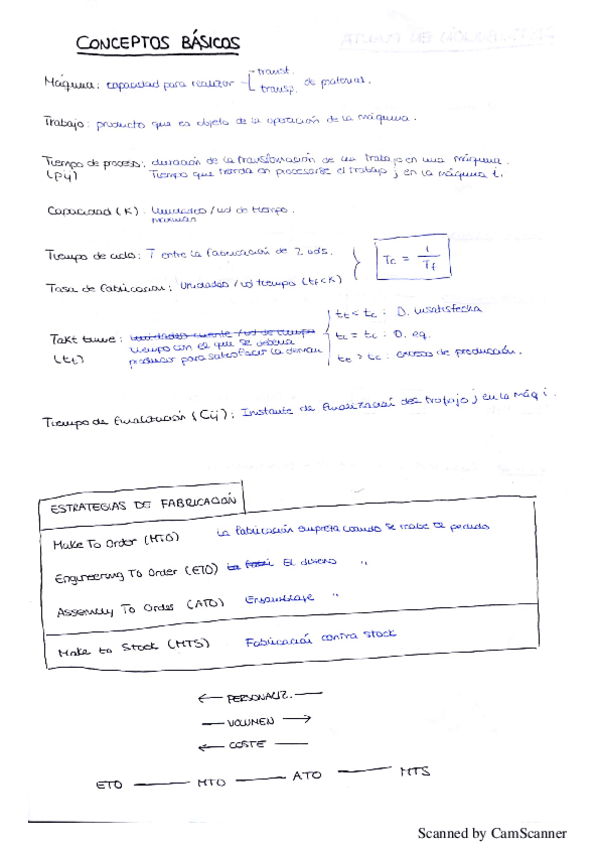 CONCEPTOS BÁSICOS
Máquina: capacidad para realizar transf. transp. de material.
Trabajo: producto que es objeto de la operación de la máquina.
Tiempo de proceso: duración de la transformación de un trabajo en una máquina.
(Pij) Tiempo que tarda en procesarse el trabajo j en la máquina i.
Capacidad (K): Unidades / ud de tiempo.
Tiempo de ciclo: T entre la fabricación de 2 uds.
Tc = 1 / Tf
Tasa de fabricación: Unidades / ud tiempo (tf<K)
Takt time: unidades cliente / ud de tiempo
(tt) tiempo con el que se debería
producir para satisfacer la deman
tt < tc : D. insatisfecha
tt = tc : D. eq.
tt > tc : exceso de producción.
Tiempo de finalización (Cij): Instante de finalización del trabajo j en la máq i.
ESTRATEGIAS DE FABRICACIÓN
Make To Order (MTO) La fabricación empieza cuando se recibe el pedido
Engineering To Order (ETO) El diseño "
Assembly To Order (ATO) Ensamblaje "
Make to Stock (MTS) Fabricación contra stock
← PERSONALIZ. —
— VOLUMEN →
← COSTE —
ETO — MTO — ATO — MTS
Scanned by CamScanner